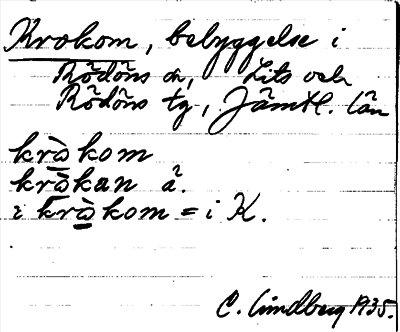 Krokom, bebyggelse i
Rödöns sn, Lits och
Rödöns tg, Jämtl. län
kròkom
kròkan å.
i kròkom = i K.
C. Lindberg 1935.